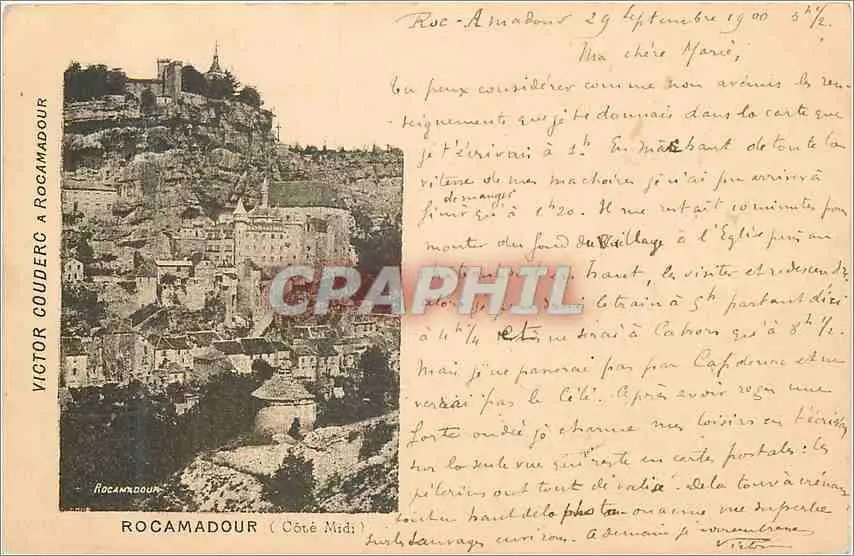 VICTOR COUDERC A ROCAMADOUR
ROCAMADOUR
ROCAMADOUR (Côté Midi)
CPARHIL
Roc-Amadour 29 Septembre 1900 5h ½
Ma chère Marie,
Tu peux considérer comme non avenus les ren-
-seignements que je te donnais dans la carte que
je t'écrivais à 1h. En mâchant de toute la
vitesse de mes machoires je n'ai pu arriver à
de manger
finir qu'à 1h20. Il me restait 10 minutes pour
monter du fond du village à l'Eglise puis au
haut, les visiter et redescendre
le train à 5h partant d'ici
à 4h ¼ je ne serai à Cahors qu'à 8h ½.
Mais je ne passerai pas par Capdenac et ne
verrai pas le Célé. Après avoir reçu une
forte ondée je charme mes loisirs en t'écrivant
sur la seule vue qui reste en cartes postales: les
pélerins ont tout dévalisé. De la tour à créneaux
tout en haut de la photo on a une vue superbe
sur les sauvages environs. A demain je vous embrasse
Victor